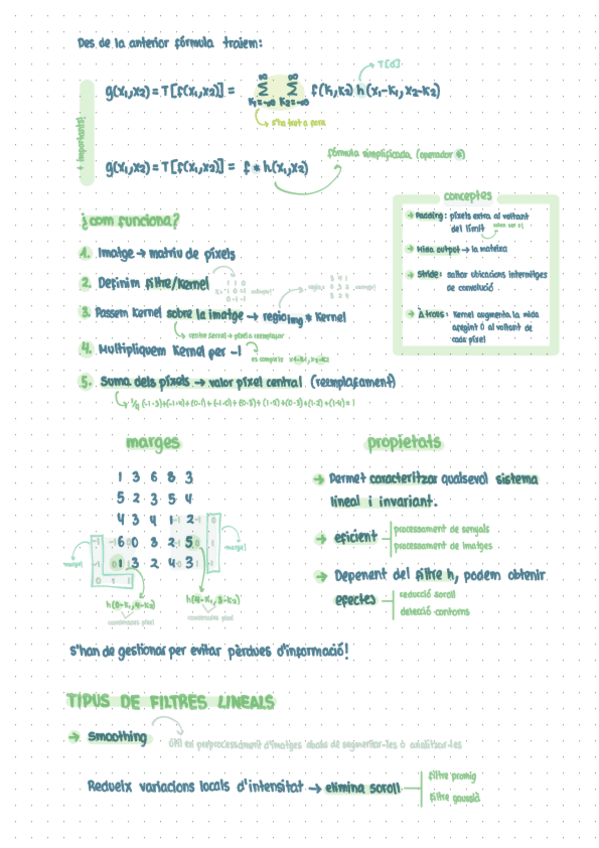 Des de la anterior fórmula traiem:
T[δ]
g(x₁,x₂) = T[f(x₁,x₂)] = Σ Σ f(k₁,k₂) h(x₁-k₁, x₂-k₂)
∞ ∞
k₁=-∞ k₂=-∞
s'ha tret a fora
+ important!
fórmula simplificada (operador *)
g(x₁,x₂) = T[f(x₁,x₂)] = f * h(x₁,x₂)
¿com funciona?
1. Imatge → matriu de píxels
2. Definim filtre/kernel
3. Passem kernel sobre la imatge → regió img * kernel
centre kernel = píxel a reemplaçar
4. Multipliquem kernel per -1
5. Suma dels píxels → valor píxel central (reemplaçament)
conceptes
→ Padding: píxels extra al voltant
del límit
→ Mida output → la mateixa
→ Stride: saltar ubicacions intermitges
de convolució
→ À trous: kernel augmenta la mida
afegint 0 al voltant de
cada píxel
marges
1 3 6 8 3
5 2 3 5 4
4 3 4 1 2
6 0 8 2 5
1 3 2 4 3
marge!
marge!
h(0-k₁, 4-k₂)
h(4-k₁, 3-k₂)
coordenades píxel
coordenades píxel
propietats
→ Permet caracteritzar qualsevol sistema
lineal i invariant.
→ eficient
processament de senyals
processament de imatges
→ Depenent del filtre h, podem obtenir
efectes
reducció soroll
detecció contorns
s'han de gestionar per evitar pèrdues d'informació!
TIPUS DE FILTRES LINEALS
→ smoothing
útil en preprocessament d'imatges abans de segmentar-les o analitzar-les
Redueix variacions locals d'intensitat → elimina soroll
filtre promig
filtre gaussià